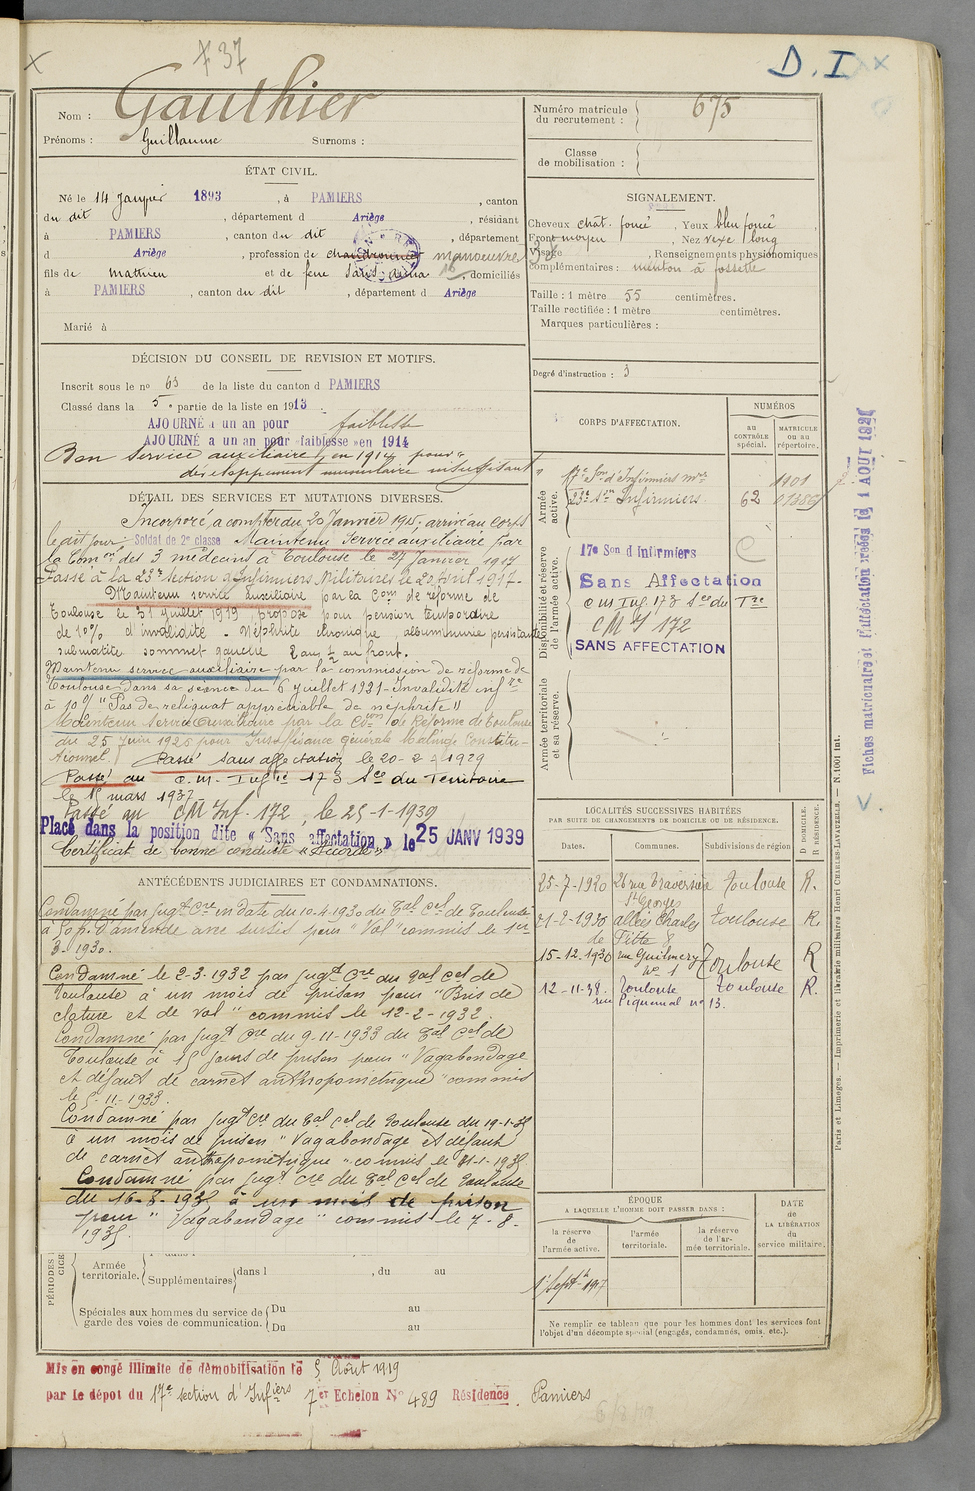 737
D. I
Nom : Gauthier
Prénoms : Guillaume Surnoms :
Numéro matricule du recrutement : 675
Classe de mobilisation :
ÉTAT CIVIL.
Né le 14 Janvier 1893, à PAMIERS, canton
du dit, département d Ariège, résidant
à PAMIERS, canton du dit, département
d Ariège, profession de manoeuvre
fils de Mathieu et de feue, domiciliés
à PAMIERS, canton du dit, département d Ariège
Marié à
SIGNALEMENT.
Cheveux chât. foncé, Yeux bleu foncé,
Front moyen, Nez vexe long
Visage, Renseignements physionomiques
complémentaires : menton à fossette
Taille : 1 mètre 55 centimètres.
Taille rectifiée : 1 mètre centimètres.
Marques particulières :
Degré d'instruction : 3
DÉCISION DU CONSEIL DE REVISION ET MOTIFS.
Inscrit sous le no 63 de la liste du canton d PAMIERS
Classé dans la 5e partie de la liste en 1913.
AJOURNÉ a un an pour faiblesse
AJOURNÉ a un an pour «faiblesse» en 1914
Bon service auxiliaire, en 1914 pour "
développement musculaire insuffisant "
DÉTAIL DES SERVICES ET MUTATIONS DIVERSES.
Incorporé, a compter du 20 Janvier 1915, arrivé au Corps
le dit jour. Soldat de 2e classe Maintenu Service auxiliaire par
la Com on des 3 médecins à Toulouse le 27 Janvier 1917
Passé à la 23e Section d'Infirmiers Militaires le 20 Avril 1917.
Maintenu service auxiliaire par la Com de réforme de
Toulouse le 31 Juillet 1919, proposé pour pension temporaire
de 10% d'invalidité. Néphrite chronique, albuminurie persistante
submatité sommet gauche 2 ans 1/2 au front.
Maintenu service auxiliaire par la commission de réforme de
Toulouse dans sa séance du 6 juillet 1921 - Invalidité inf re
à 10% "Pas de reliquat appréciable de néphrite"
Maintenu Service Auxiliaire par la Con de Réforme de Toulouse
du 25 Juin 1925 pour Insuffisance générale Malingre Constitu-
tionnel. Passé sans affectation le 20-2-1929
Passé au c.m. Infie 173 Son du Territoire
le 15 mars 1937
Passé au CM Inf. 172, le 25-1-1939
Placé dans la position dite « Sans affectation » le 25 JANV 1939
Certificat de bonne conduite « Accordé »
CORPS D'AFFECTATION.
NUMÉROS
au CONTRÔLE spécial.
MATRICULE ou au répertoire.
Armée active.
17e Son d'Infirmiers mres 1901
23e Son Infirmiers 62
Disponibilité et réserve de l'armée active.
17e Son d'Infirmiers
Sans Affectation
c m Inf. 173 Son du Tre
C M I 172
SANS AFFECTATION
Armée territoriale et sa réserve.
LOCALITÉS SUCCESSIVES HABITÉES
PAR SUITE DE CHANGEMENTS DE DOMICILE OU DE RÉSIDENCE.
Dates. Communes. Subdivisions de région D DOMICILE. R RÉSIDENCE.
25-7-1920 26 rue Traversière St Georges Toulouse R.
21-2-1930 allées Charles de Fitte 8 Toulouse R.
15-12.1930 rue Guilmery no 1 Toulouse R
12-11-38. Toulouse rue Piquemal no 13. Toulouse R.
ANTÉCÉDENTS JUDICIAIRES ET CONDAMNATIONS.
Condamné par Jugt Cre en date du 10.4.1930 du Tal Cel de Toulouse
à 50 f. d'amende avec sursis pour "Vol" commis le 1er
3-1930.
Condamné le 2.3.1932 par jugt Cre du Tal Cel de
Toulouse à un mois de prison pour "Bris de
clôture et de vol" commis le 12-2-1932.
Condamné par jugt Cre du 9-11-1933 du Tal Cel de
Toulouse à 15 jours de prison pour "Vagabondage
et défaut de carnet anthropométrique" commis
le 5-11-1933.
Condamné par jugt Cel du Tal Cel de Toulouse du 19-1-35
à un mois de prison "Vagabondage et défaut
de carnet anthropométrique" commis le
Condamné par jugt Cre du Tal Cel de Toulouse
du 16-8-1935 à un mois de prison
pour "Vagabondage" commis le 7-8-
1935.
PÉRIODES
Armée territoriale. Supplémentaires dans l, du au
Spéciales aux hommes du service de garde des voies de communication. Du au
Du au
ÉPOQUE
A LAQUELLE L'HOMME DOIT PASSER DANS :
la réserve de l'armée active.
l'armée territoriale.
la réserve de l'armée territoriale.
DATE de LA LIBÉRATION du service militaire.
1r Septre 1917
Ne remplir ce tableau que pour les hommes dont les services font
l'objet d'un décompte spécial (engagés, condamnés, omis, etc.).
Mis en congé illimité de démobilisation le 5 Août 1919
par le dépot du 17e section d'Infiers 7er Echelon No 489 Résidence. Pamiers
Paris et Limoges. — Imprimerie et librairie militaires Henri CHARLES-LAVAUZELLE. — N. 1001 int.